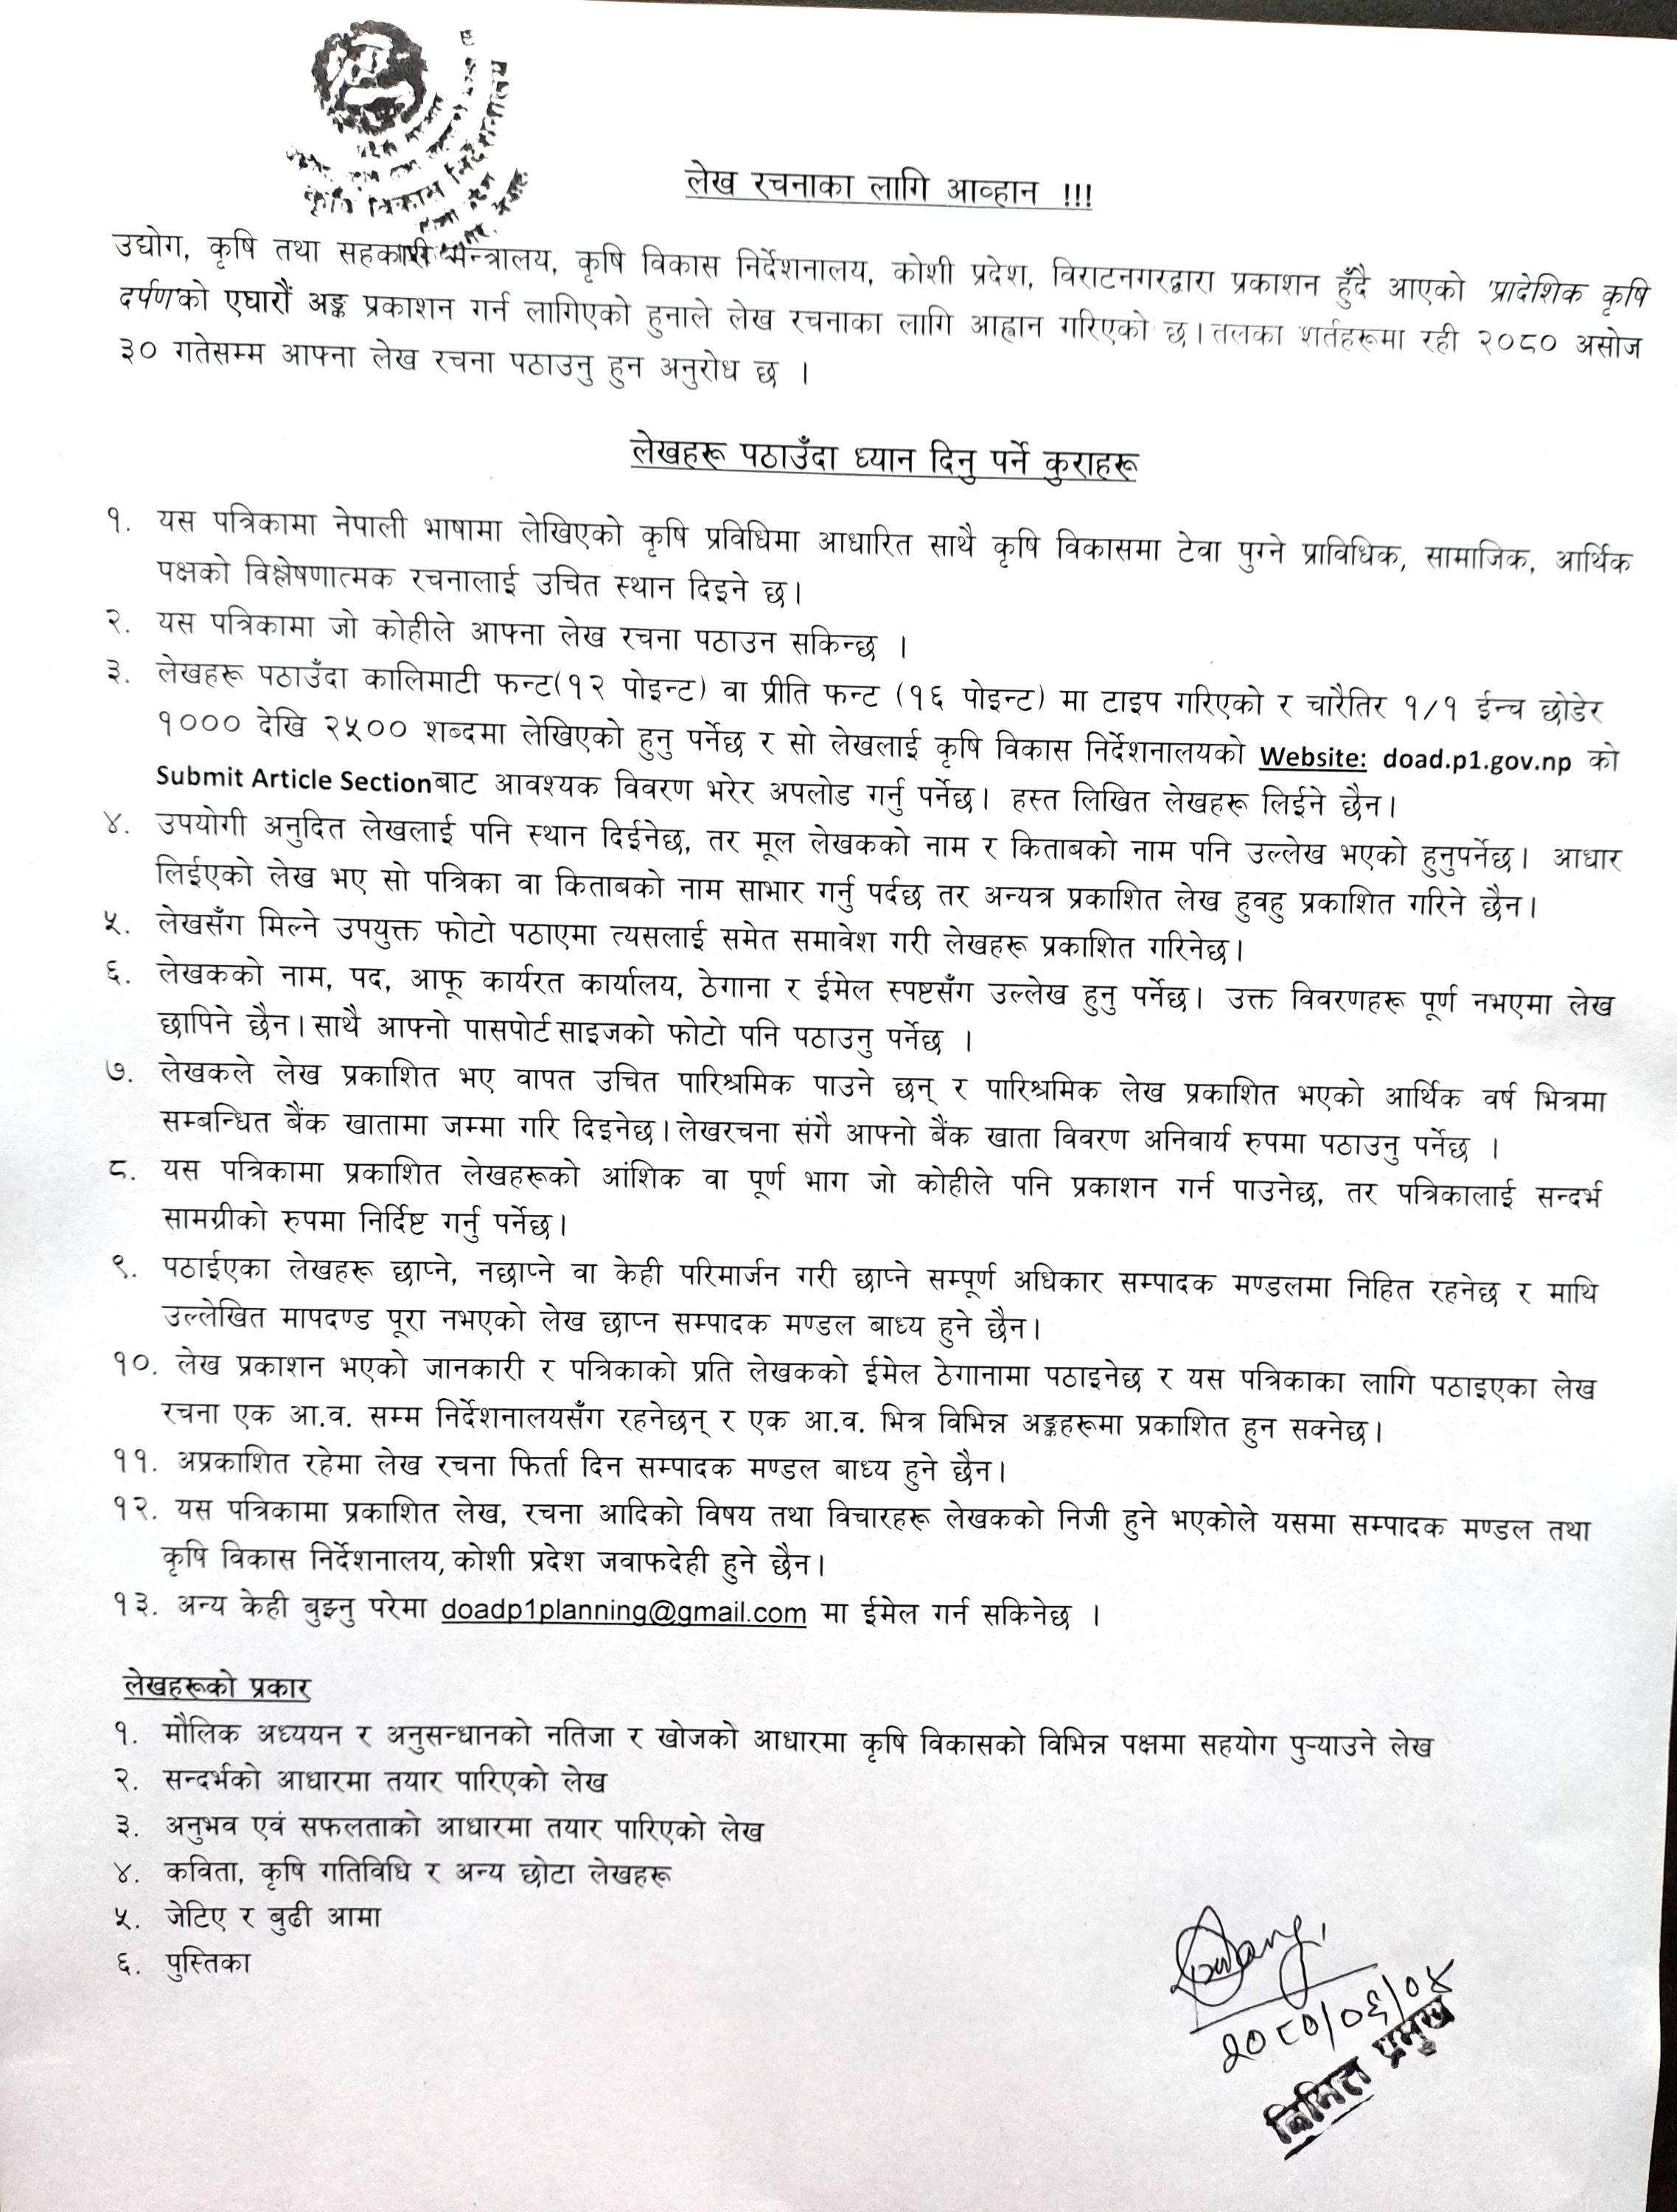 लेख रचनाका लागि आव्हान !!!
उद्योग, कृषि तथा सहकारी मन्त्रालय, कृषि विकास निर्देशनालय, कोशी प्रदेश, विराटनगरद्वारा प्रकाशन हुँदै आएको 'प्रादेशिक कृषि
दर्पण'को एघारौं अङ्क प्रकाशन गर्न लागिएको हुनाले लेख रचनाका लागि आह्वान गरिएको छ। तलका शर्तहरूमा रही २०८० असोज
३० गतेसम्म आफ्ना लेख रचना पठाउनु हुन अनुरोध छ ।
लेखहरू पठाउँदा ध्यान दिनु पर्ने कुराहरू
१. यस पत्रिकामा नेपाली भाषामा लेखिएको कृषि प्रविधिमा आधारित साथै कृषि विकासमा टेवा पुग्ने प्राविधिक, सामाजिक, आर्थिक
पक्षको विश्लेषणात्मक रचनालाई उचित स्थान दिइने छ।
२. यस पत्रिकामा जो कोहीले आफ्ना लेख रचना पठाउन सकिन्छ ।
३. लेखहरू पठाउँदा कालिमाटी फन्ट(१२ पोइन्ट) वा प्रीति फन्ट (१६ पोइन्ट) मा टाइप गरिएको र चारैतिर १/१ ईन्च छोडेर
१००० देखि २५०० शब्दमा लेखिएको हुनु पर्नेछ र सो लेखलाई कृषि विकास निर्देशनालयको Website: doad.p1.gov.np को
Submit Article Sectionबाट आवश्यक विवरण भरेर अपलोड गर्नु पर्नेछ। हस्त लिखित लेखहरू लिईने छैन।
४. उपयोगी अनुदित लेखलाई पनि स्थान दिईनेछ, तर मूल लेखकको नाम र किताबको नाम पनि उल्लेख भएको हुनुपर्नेछ। आधार
लिईएको लेख भए सो पत्रिका वा किताबको नाम साभार गर्नु पर्दछ तर अन्यत्र प्रकाशित लेख हुवहु प्रकाशित गरिने छैन।
५. लेखसँग मिल्ने उपयुक्त फोटो पठाएमा त्यसलाई समेत समावेश गरी लेखहरू प्रकाशित गरिनेछ।
६. लेखकको नाम, पद, आफू कार्यरत कार्यालय, ठेगाना र ईमेल स्पष्टसँग उल्लेख हुनु पर्नेछ। उक्त विवरणहरू पूर्ण नभएमा लेख
छापिने छैन। साथै आफ्नो पासपोर्ट साइजको फोटो पनि पठाउनु पर्नेछ ।
७. लेखकले लेख प्रकाशित भए वापत उचित पारिश्रमिक पाउने छन् र पारिश्रमिक लेख प्रकाशित भएको आर्थिक वर्ष भित्रमा
सम्बन्धित बैंक खातामा जम्मा गरि दिइनेछ। लेखरचना संगै आफ्नो बैंक खाता विवरण अनिवार्य रुपमा पठाउनु पर्नेछ ।
८. यस पत्रिकामा प्रकाशित लेखहरूको आंशिक वा पूर्ण भाग जो कोहीले पनि प्रकाशन गर्न पाउनेछ, तर पत्रिकालाई सन्दर्भ
सामग्रीको रुपमा निर्दिष्ट गर्नु पर्नेछ।
९. पठाईएका लेखहरू छाप्ने, नछाप्ने वा केही परिमार्जन गरी छाप्ने सम्पूर्ण अधिकार सम्पादक मण्डलमा निहित रहनेछ र माथि
उल्लेखित मापदण्ड पूरा नभएको लेख छाप्न सम्पादक मण्डल बाध्य हुने छैन।
१०. लेख प्रकाशन भएको जानकारी र पत्रिकाको प्रति लेखकको ईमेल ठेगानामा पठाइनेछ र यस पत्रिकाका लागि पठाइएका लेख
रचना एक आ.व. सम्म निर्देशनालयसँग रहनेछन् र एक आ.व. भित्र विभिन्न अङ्कहरूमा प्रकाशित हुन सक्नेछ।
११. अप्रकाशित रहेमा लेख रचना फिर्ता दिन सम्पादक मण्डल बाध्य हुने छैन।
१२. यस पत्रिकामा प्रकाशित लेख, रचना आदिको विषय तथा विचारहरू लेखकको निजी हुने भएकोले यसमा सम्पादक मण्डल तथा
कृषि विकास निर्देशनालय, कोशी प्रदेश जवाफदेही हुने छैन।
१३. अन्य केही बुझ्नु परेमा doadp1planning@gmail.com मा ईमेल गर्न सकिनेछ ।
लेखहरूको प्रकार
१. मौलिक अध्ययन र अनुसन्धानको नतिजा र खोजको आधारमा कृषि विकासको विभिन्न पक्षमा सहयोग पुऱ्याउने लेख
२. सन्दर्भको आधारमा तयार पारिएको लेख
३. अनुभव एवं सफलताको आधारमा तयार पारिएको लेख
४. कविता, कृषि गतिविधि र अन्य छोटा लेखहरू
५. जेटिए र बुढी आमा
६. पुस्तिका
२०८०/०६/०४
निमित्त प्रमुख